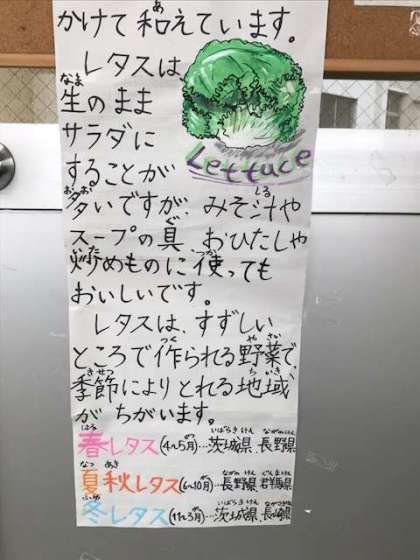 かけて和えています。
レタスは、
生のまま
サラダに
することが
多いですが、みそ汁や
スープの具、おひたしや
炒めものに使っても
おいしいです。
レタスは、すずしい
ところで作られる野菜で、
季節によりとれる地域
がちがいます。
Lettuce
春レタス(4~5月)…茨城県、長野県
夏秋レタス(6~10月)…長野県、群馬県
冬レタス(11~3月)…茨城県、長崎県